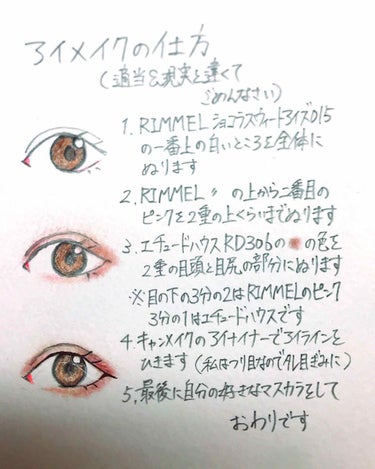 アイメイクの仕方
(適当&現実と違くて
ごめんなさい)
1. RIMMEL ショコラスウィートアイズ015
の一番上の白いところを全体に
ぬります
2. RIMMEL 〃 の上から二番目の
ピンクを2重の上くらいまでぬります
3. エチュードハウスRD306の の色を
2重の目頭と目尻の部分にぬります
※目の下の3分の2はRIMMELのピンク
3分の1はエチュードハウスです
4. キャンメイクのアイナイナーでアイラインを
ひきます(私はつり目なのでタレ目ぎみに)
5. 最後に自分の好きなマスカラをして
おわりです